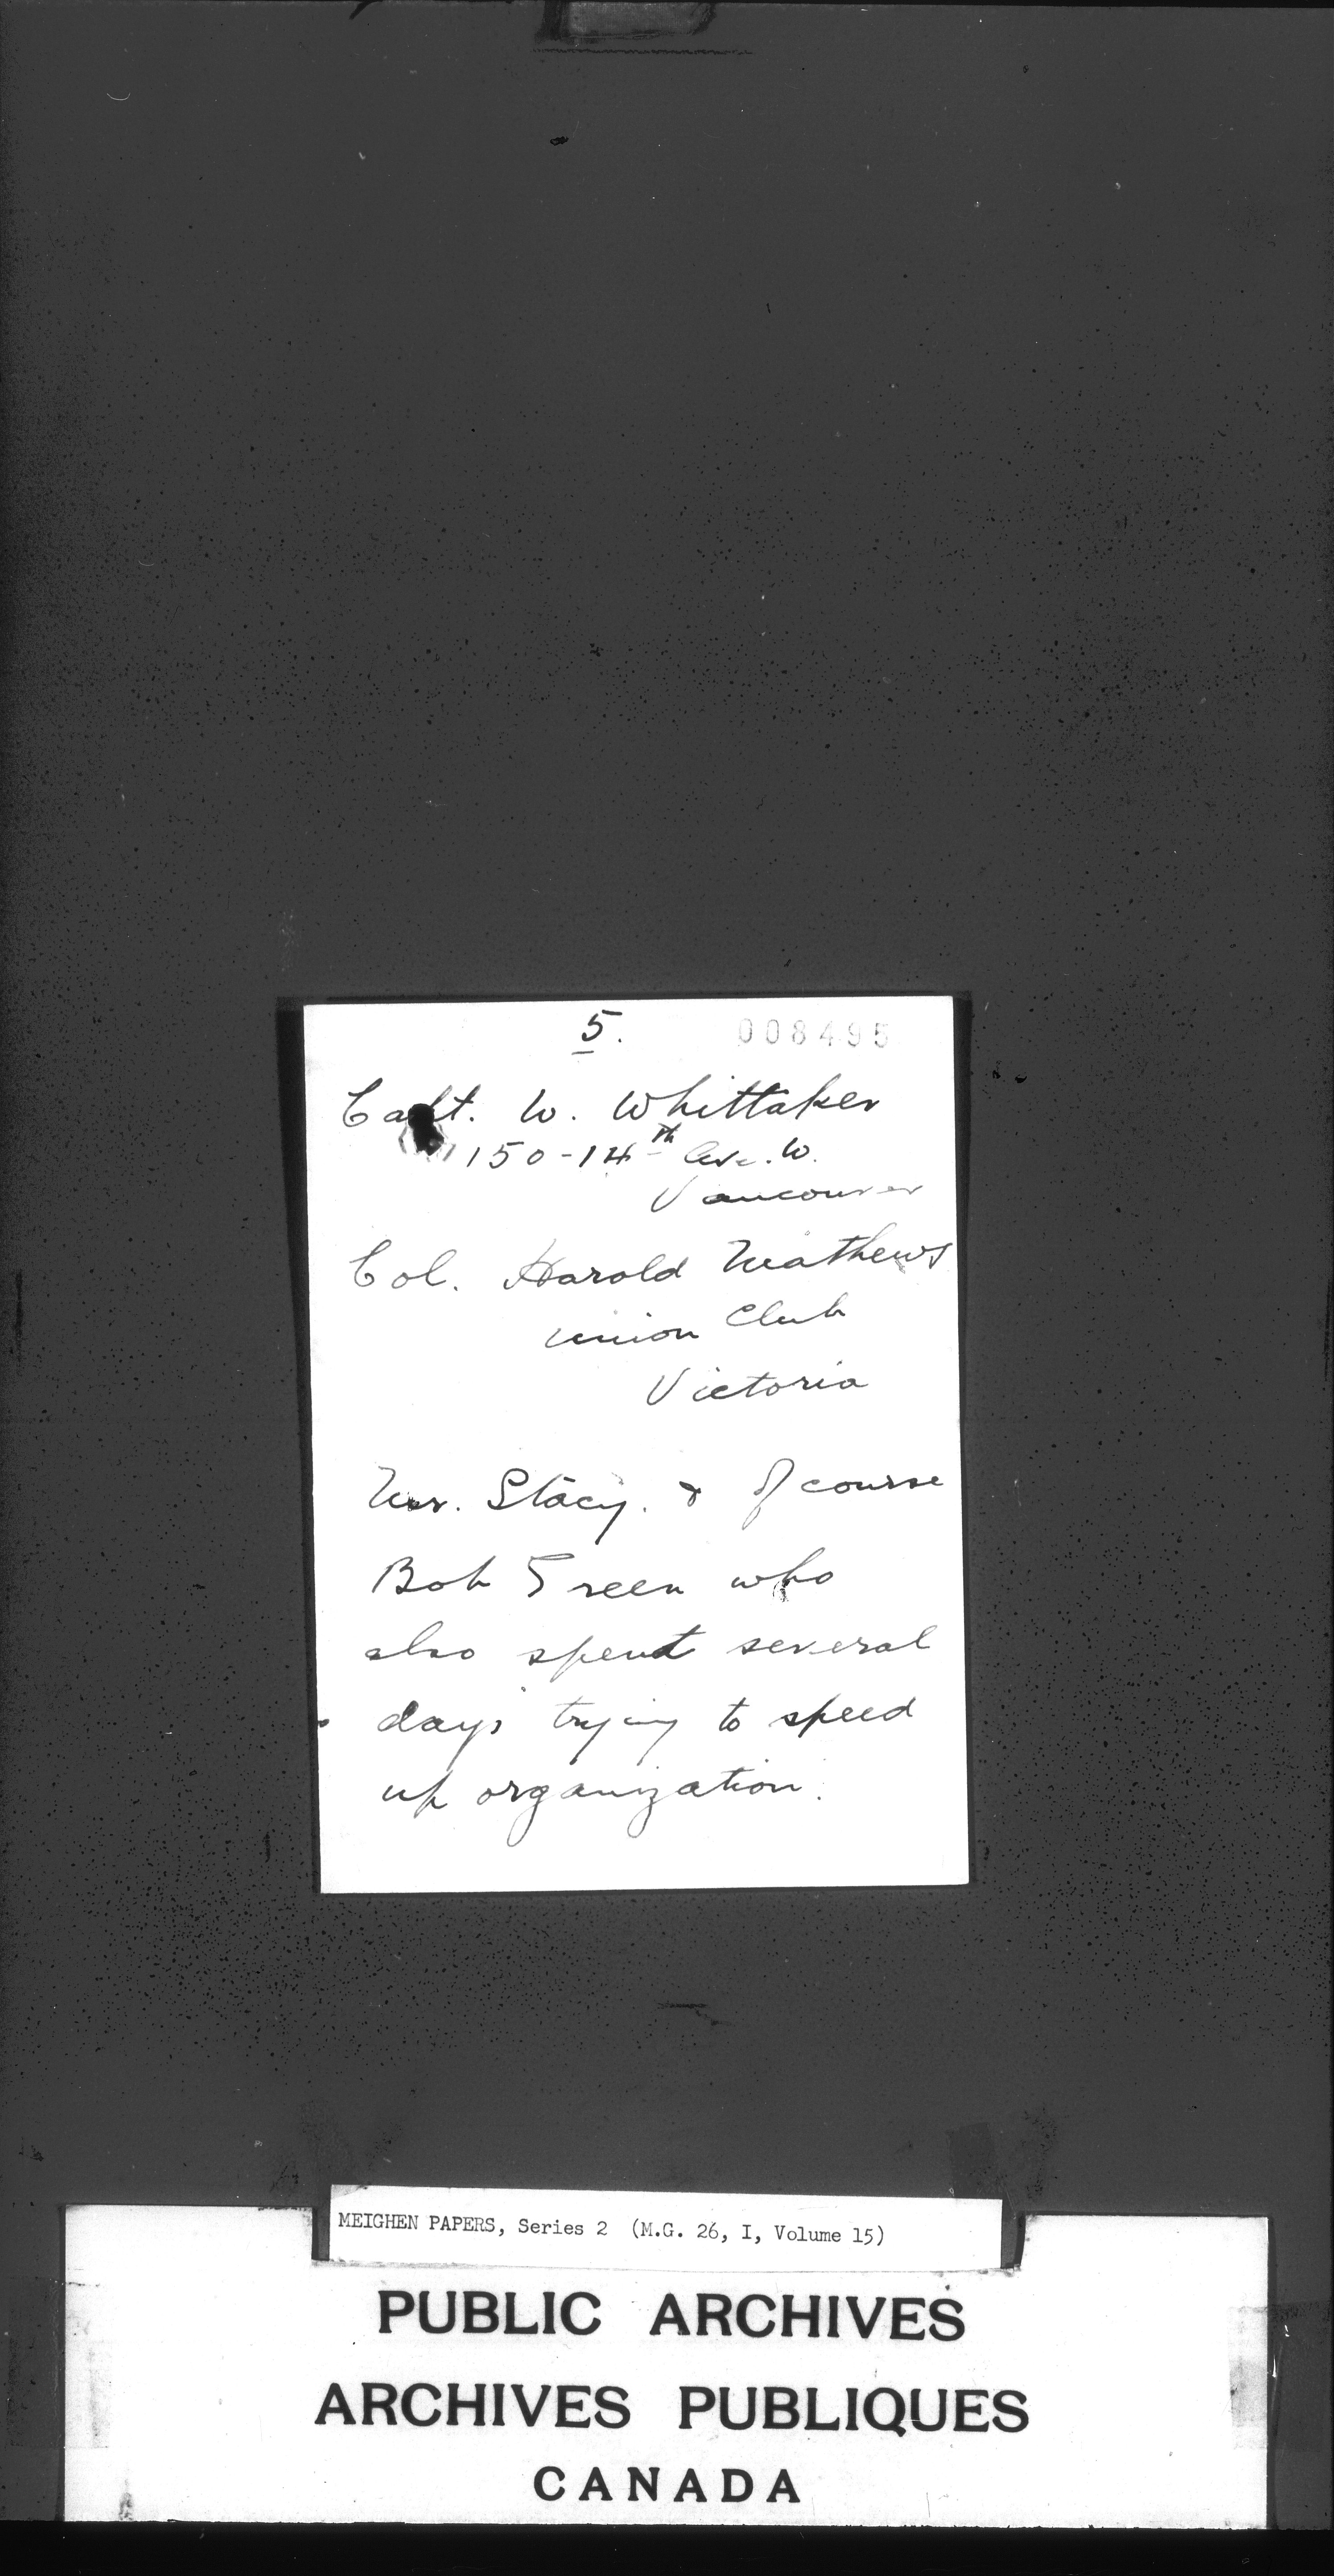 5.
008495
Capt. W. Whittaker
150-14th Ave. W.
Vancouver
Col. Harold Mathews
Union Club
Victoria
Mr. Stacy. & of course
Bob Green who
also spent several
days trying to speed
up organization.
MEIGHEN PAPERS, Series 2 (M.G. 26, I, Volume 15)
PUBLIC ARCHIVES
ARCHIVES PUBLIQUES
CANADA